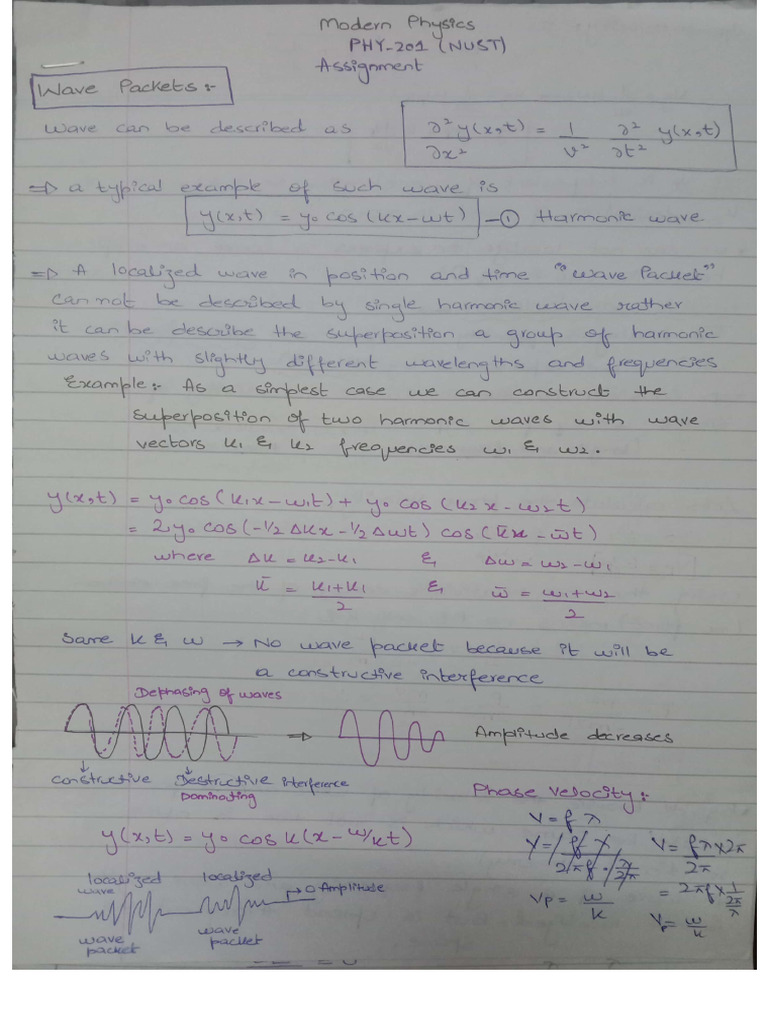 Modern Physics
PHY-201 (NUST)
Assignment
Wave Packets:-
Wave can be described as ∂²y(x,t)/∂x² = 1/v² ∂²/∂t² y(x,t)
⇒ a typical example of such wave is
y(x,t) = y₀ cos(kx-ωt) -① Harmonic wave
⇒ A localized wave in position and time "Wave Packet"
can not be described by single harmonic wave rather
it can be describe the superposition a group of harmonic
waves with slightly different wavelengths and frequencies
Example:- As a simplest case we can construct the
superposition of two harmonic waves with wave
vectors k₁ & k₂ frequencies ω₁ & ω₂.
y(x,t) = y₀ cos(k₁x-ω₁t) + y₀ cos(k₂x-ω₂t)
= 2y₀ cos(-1/2 Δkx-1/2 Δωt) cos(k̄x-ω̄t)
where Δk = k₂-k₁ & Δω = ω₂-ω₁
k̄ = k₁+k₁/2 & ω̄ = ω₁+ω₂/2
Same k & ω → No wave packet because it will be
a constructive interference
Dephasing of waves
⇒ Amplitude decreases
constructive Destructive interference
Dominating
Phase velocity:-
V = f λ
y(x,t) = y₀ cos k(x-ω/kt)
V = fλ×2π/2π
= 2πf×1/2π/λ
Vp = ω/k
Vp = ω/k
localized wave
localized
→ 0 Amplitude
wave packet
wave packet